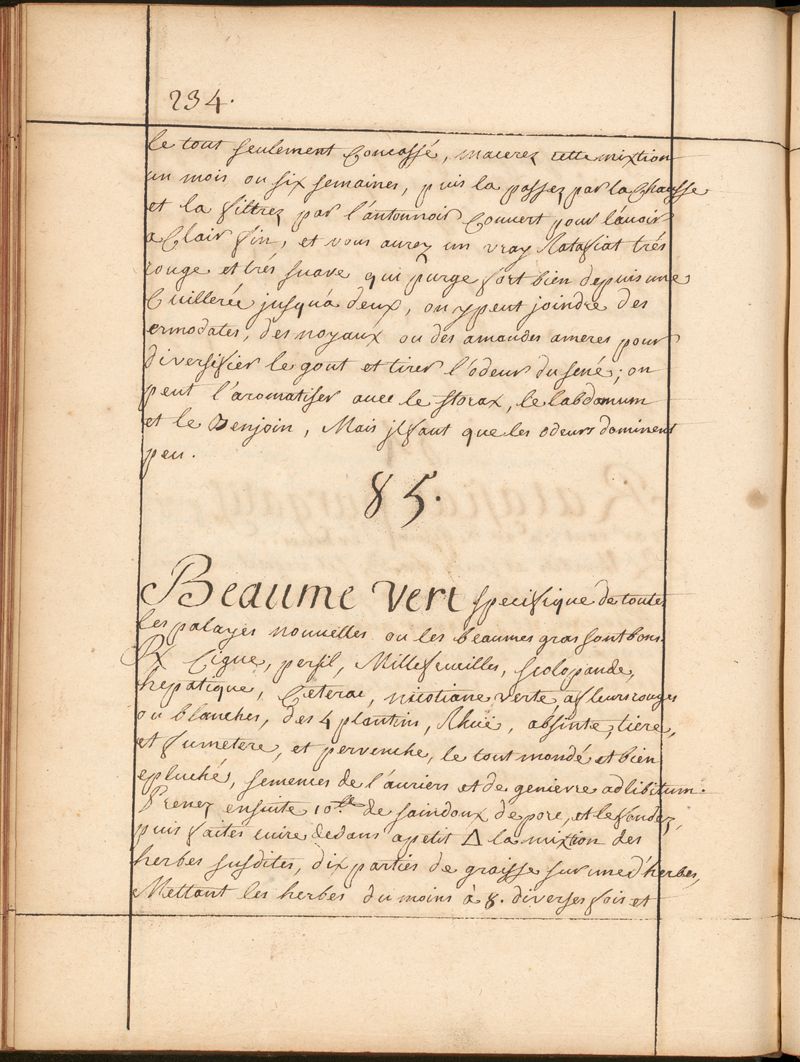 234.
le tout seulement Concassé, macerez cette mixtion
un mois ou six semaines, puis la passez par la Chausse
et la filtrez par l'antonnoir Couvert pour l'auoir
a Clair fin, et vous aurez un vray Ratafiat trés
rouge et trés suave qui purge fort bien depuis une
Cuillerée jusqu'a deux, on y peut joindre des
ermodates, des noyaux ou des amandes ameres pour
diversifier le gout et tirer l'odeur du sené; on
peut l'aromatiser auec le storax, le labdomum
et le Benjoin, Mais jl faut que les odeurs dominent
peu.
85.
Beaume vert specifique de toutes
les palayes nouuelles ou les beaumes gras sont bons.
℞ Cigue, persil, Millefeuilles, scolopande,
hepatique, Céterac, nicotiane verte a fleurs rouges
ou blanches, des 4 plantins, Rhuë, absinte, liere,
et fumetere, et pervenche, le tout mondé et bien
epluché, semences de l'auriers et de genievre ad libitum.
Prenez ensuite 10.lb de saindoux de porc, et le fondez,
puis faites cuire dedans a petit △ la mixtion des
herbes susdites, dix parties de graisse sur une d'herbes,
Mettant les herbes du moins à 8. diverses fois et